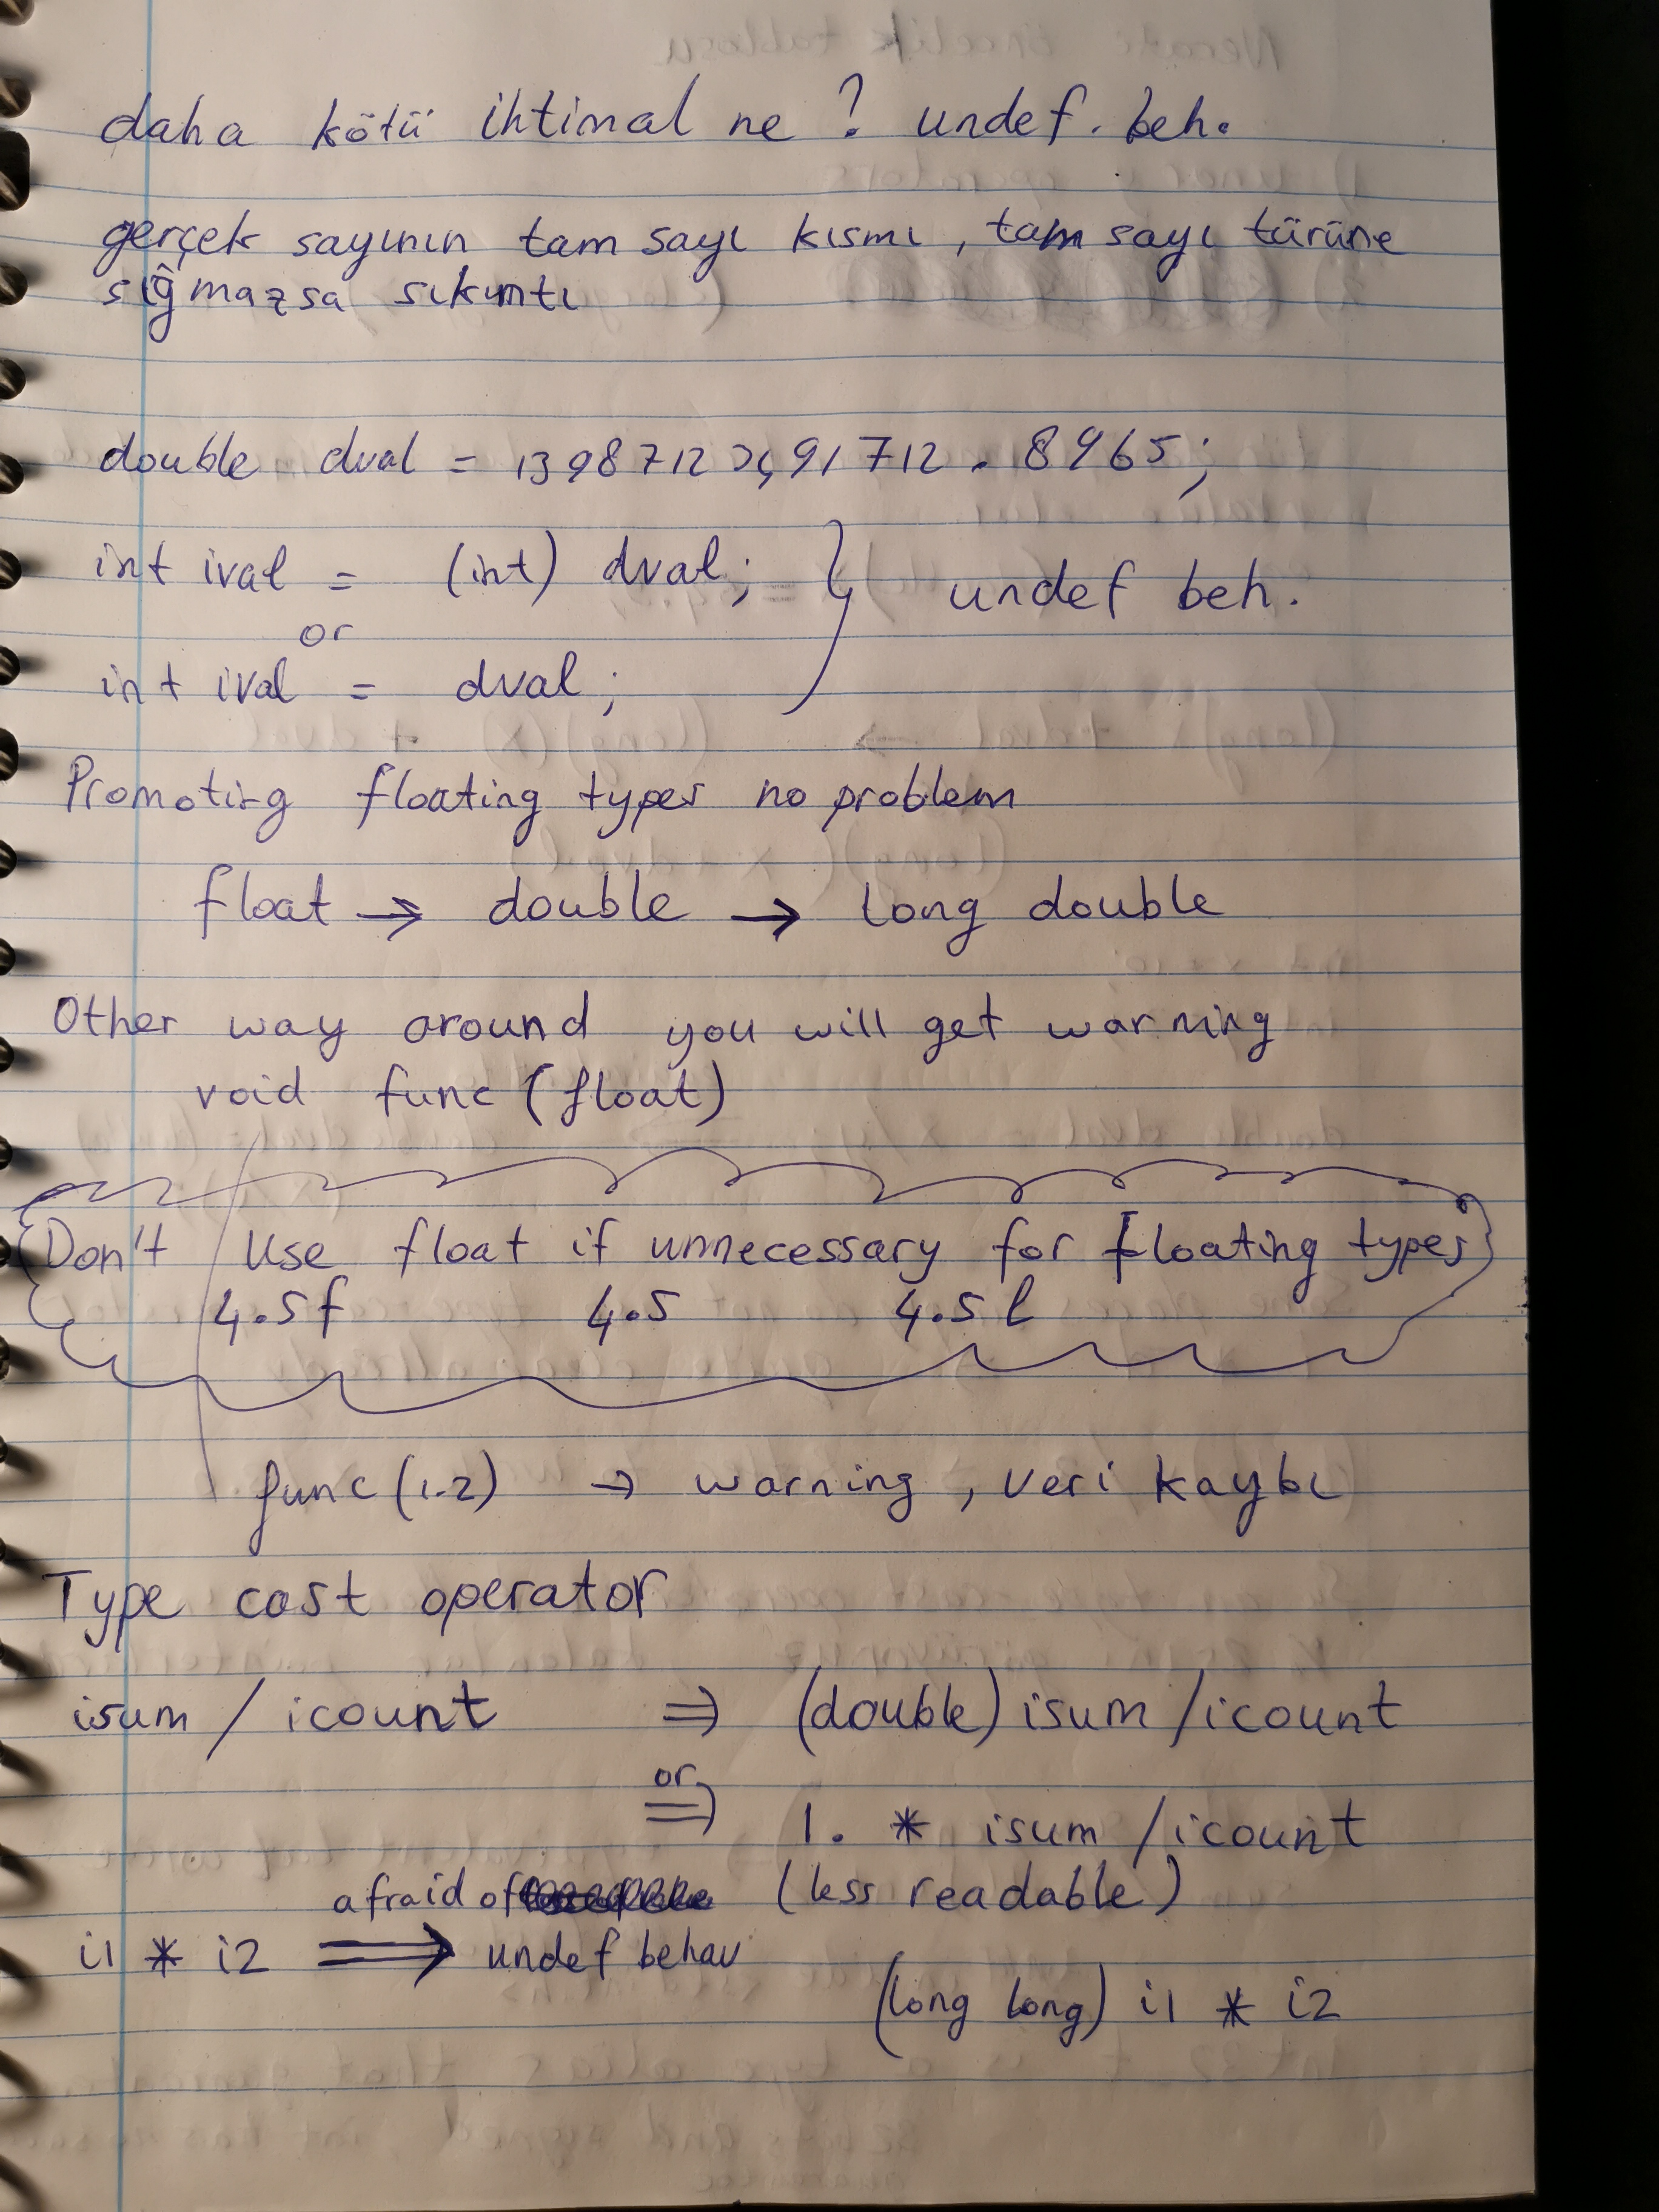 daha kötü ihtimal ne ? undef. beh.
gerçek sayının tam sayı kısmı, tam sayı türüne
sığmazsa sıkıntı
double dval =
int ival = (int) dval; } undef beh.
or
int ival = dval;
Promoting floating types no problem
float → double → long double
Other way around you will get warning
void func (float)
Don't Use float if unnecessary for floating types
4.5f 4.5 4.5l
func (1.2) → warning, veri kaybı
Type cast operator
isum / icount ⇒ (double) isum / icount
or
⇒ 1. * isum / icount
afraid of (less readable)
i1 * i2 ⟹ undef behav
(long long) i1 * i2